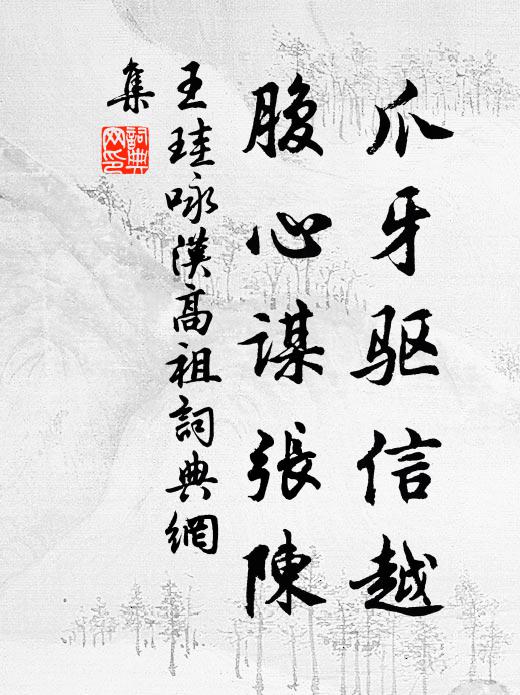 爪牙驱信越
腹心谋張陳
王珪咏漢高祖詞典網
集
詞典網印